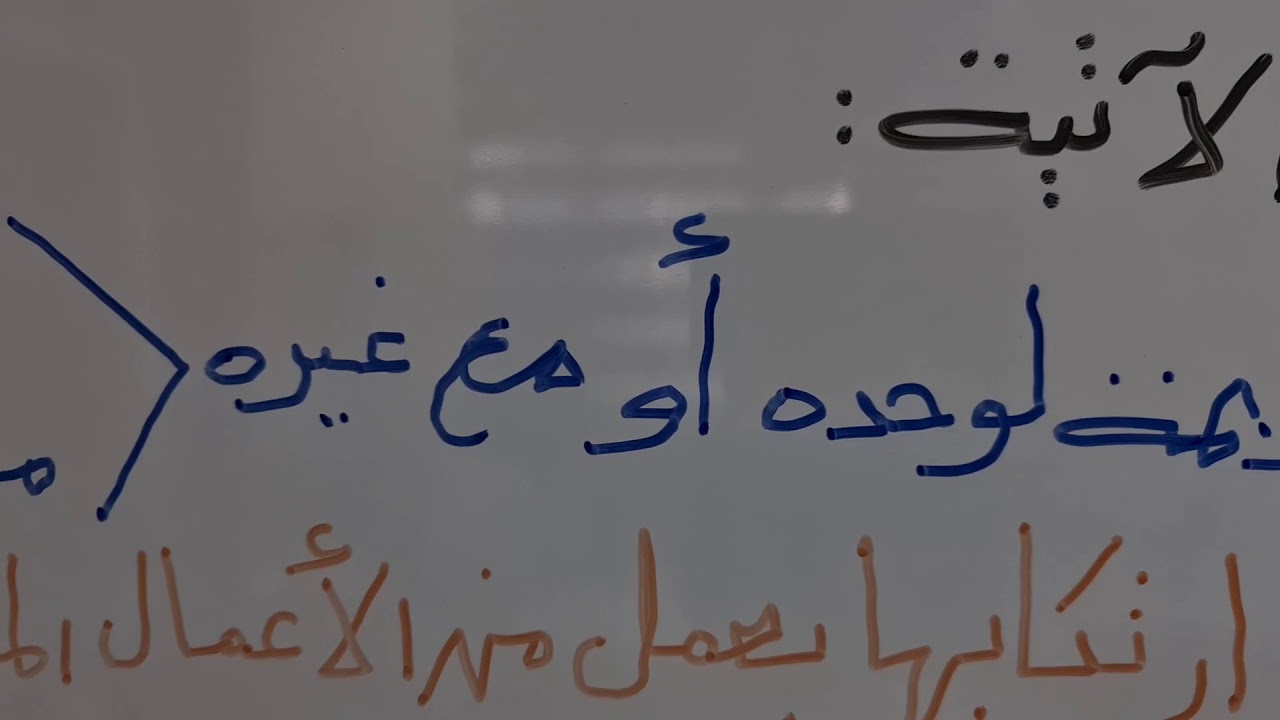 الآنية :
لوحده أو مع غيره
ارتكابها بعمل من الأعمال